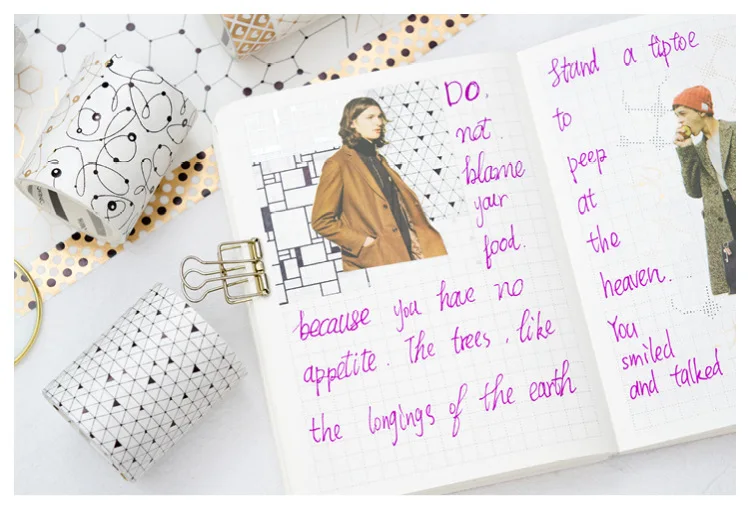 Do,
not.
blame
your
food.
because you have no
appetite. The trees, like
the longings of the earth
Stand a tiptoe
to
peep
at
the
heaven.
You
smiled
and talked